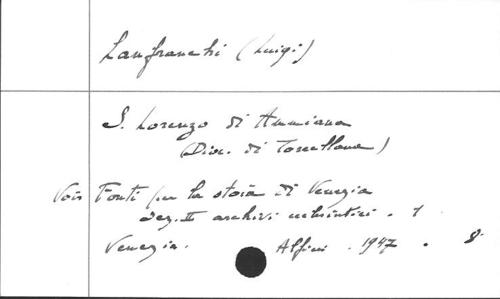 Lanfranchi (Luigi)
S. Lorenzo di Ammiana
(Dioc. di Torcellana)
Voir Fonti per la storia di Venezia
Sez. II archivi - 1
Venezia. Alfieri . 1947 . 8°